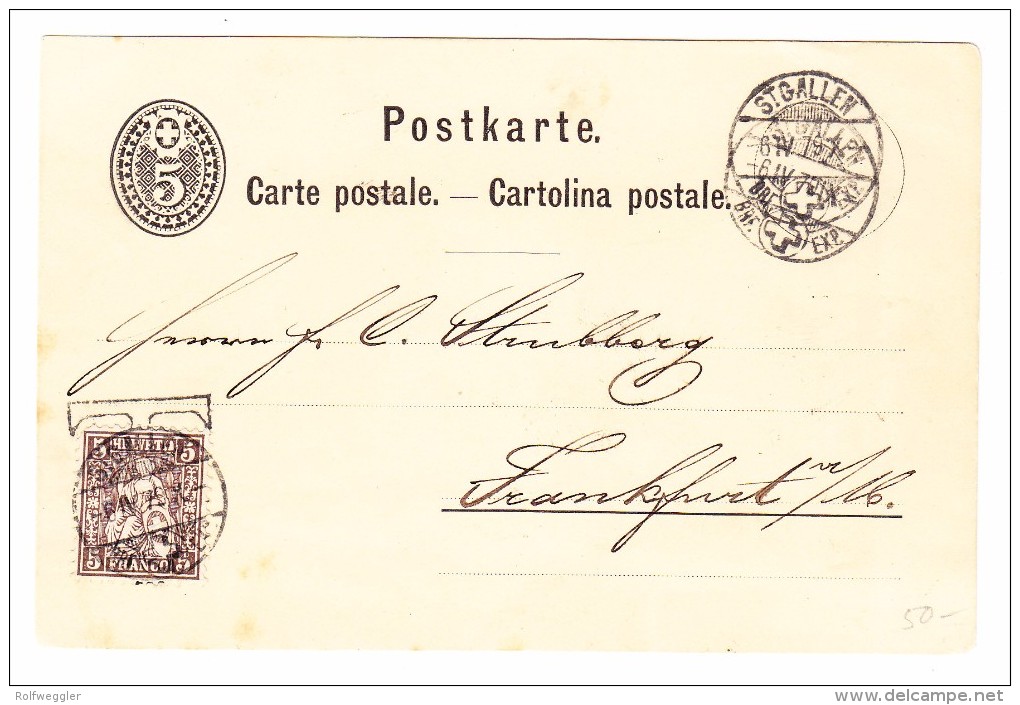 5
Postkarte.
Carte postale. — Cartolina postale.
ST. GALLEN
6 IV 79
BRF. EXP.
Herrn F. C. Strubberg
Frankfurt a/M.
5 HELVETIA 5
5 FRANCO 5
50-
Rolfweggler
www.delcampe.net